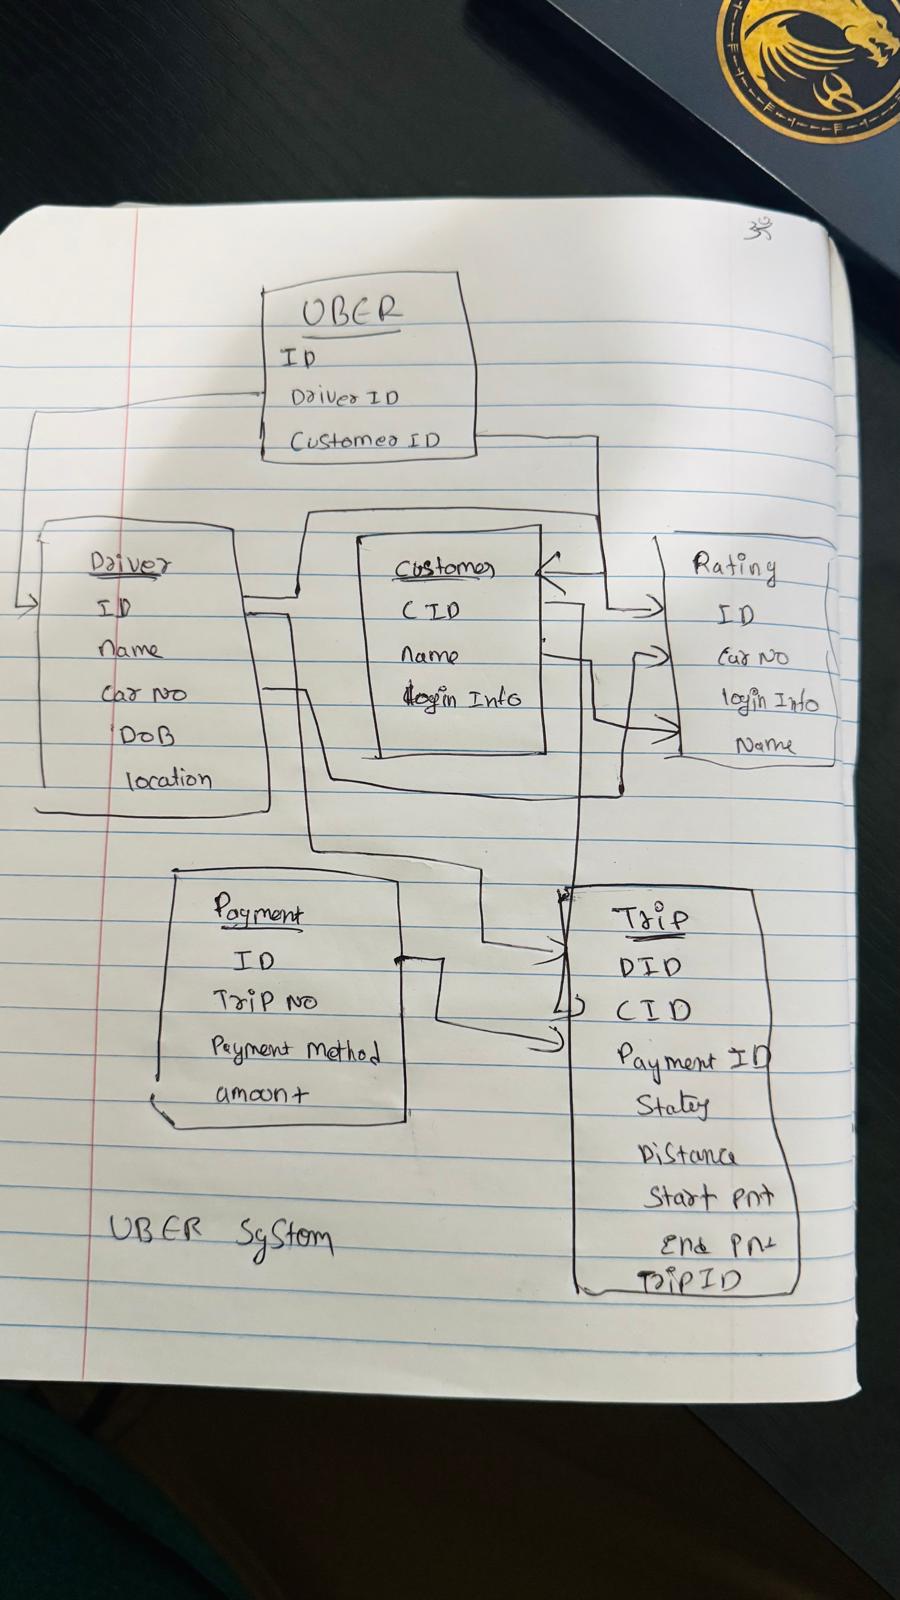 ॐ
UBER
ID
Driver ID
Customer ID
Driver
ID
Name
Car NO
DOB
location
Customer
CID
Name
login Info
Rating
ID
Car NO
login Info
Name
Payment
ID
Trip NO
Payment Method
amount
Trip
DID
CID
Payment ID
Distance
Start Pnt
End Pnt
Trip ID
UBER SyStem